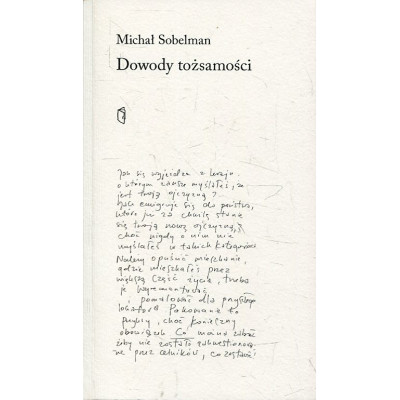 Michał Sobelman
Dowody tożsamości
Jak się wyjeżdża z kraju
o którym zawsze myślałeś, że
jest twoją ojczyzną?
Jak emigruje się do państwa,
które już za chwilę stanie
się twoją nową ojczyzną,
choć nigdy o nim nie
myślałeś w takich kategoriach
Należy opuścić mieszkanie,
gdzie mieszkałeś przez
większą część życia, trzeba
je wyremontować
i pomalować dla przyszłego
lokatora. Pakowanie to
przykry, choć konieczny
obowiązek. Co można zabrać
żeby nie zostało zakwestionowa-
ne przez celników, co zostawić